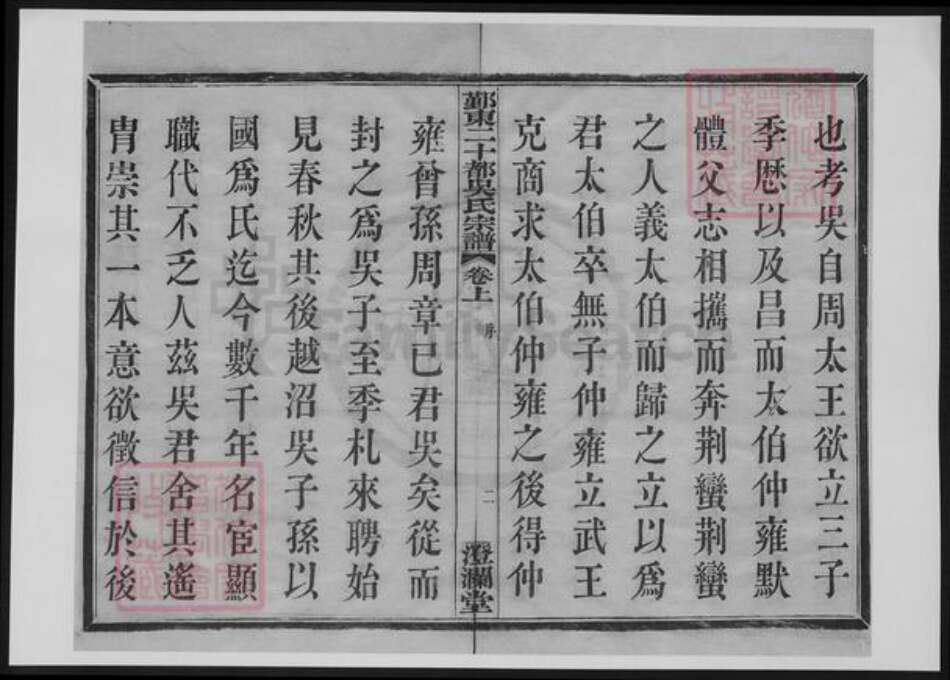 也考吳自周太王欲立三子
季厯以及昌而太伯仲雍默
體父志相攜而奔荆蠻荆蠻
之人義太伯而歸之立以爲
君太伯卒無子仲雍立武王
克商求太伯仲雍之後得仲
鄞東二十都吳氏宗譜 卷上 序 二 澄瀾堂
雍曾孫周章已君吳矣從而
封之爲吳子至季札來聘始
見春秋其後越沼吳子孫以
國爲氏迄今數千年名宦顯
職代不乏人茲吳君舍其遙
胄崇其一本意欲徵信於後
FamilySearch